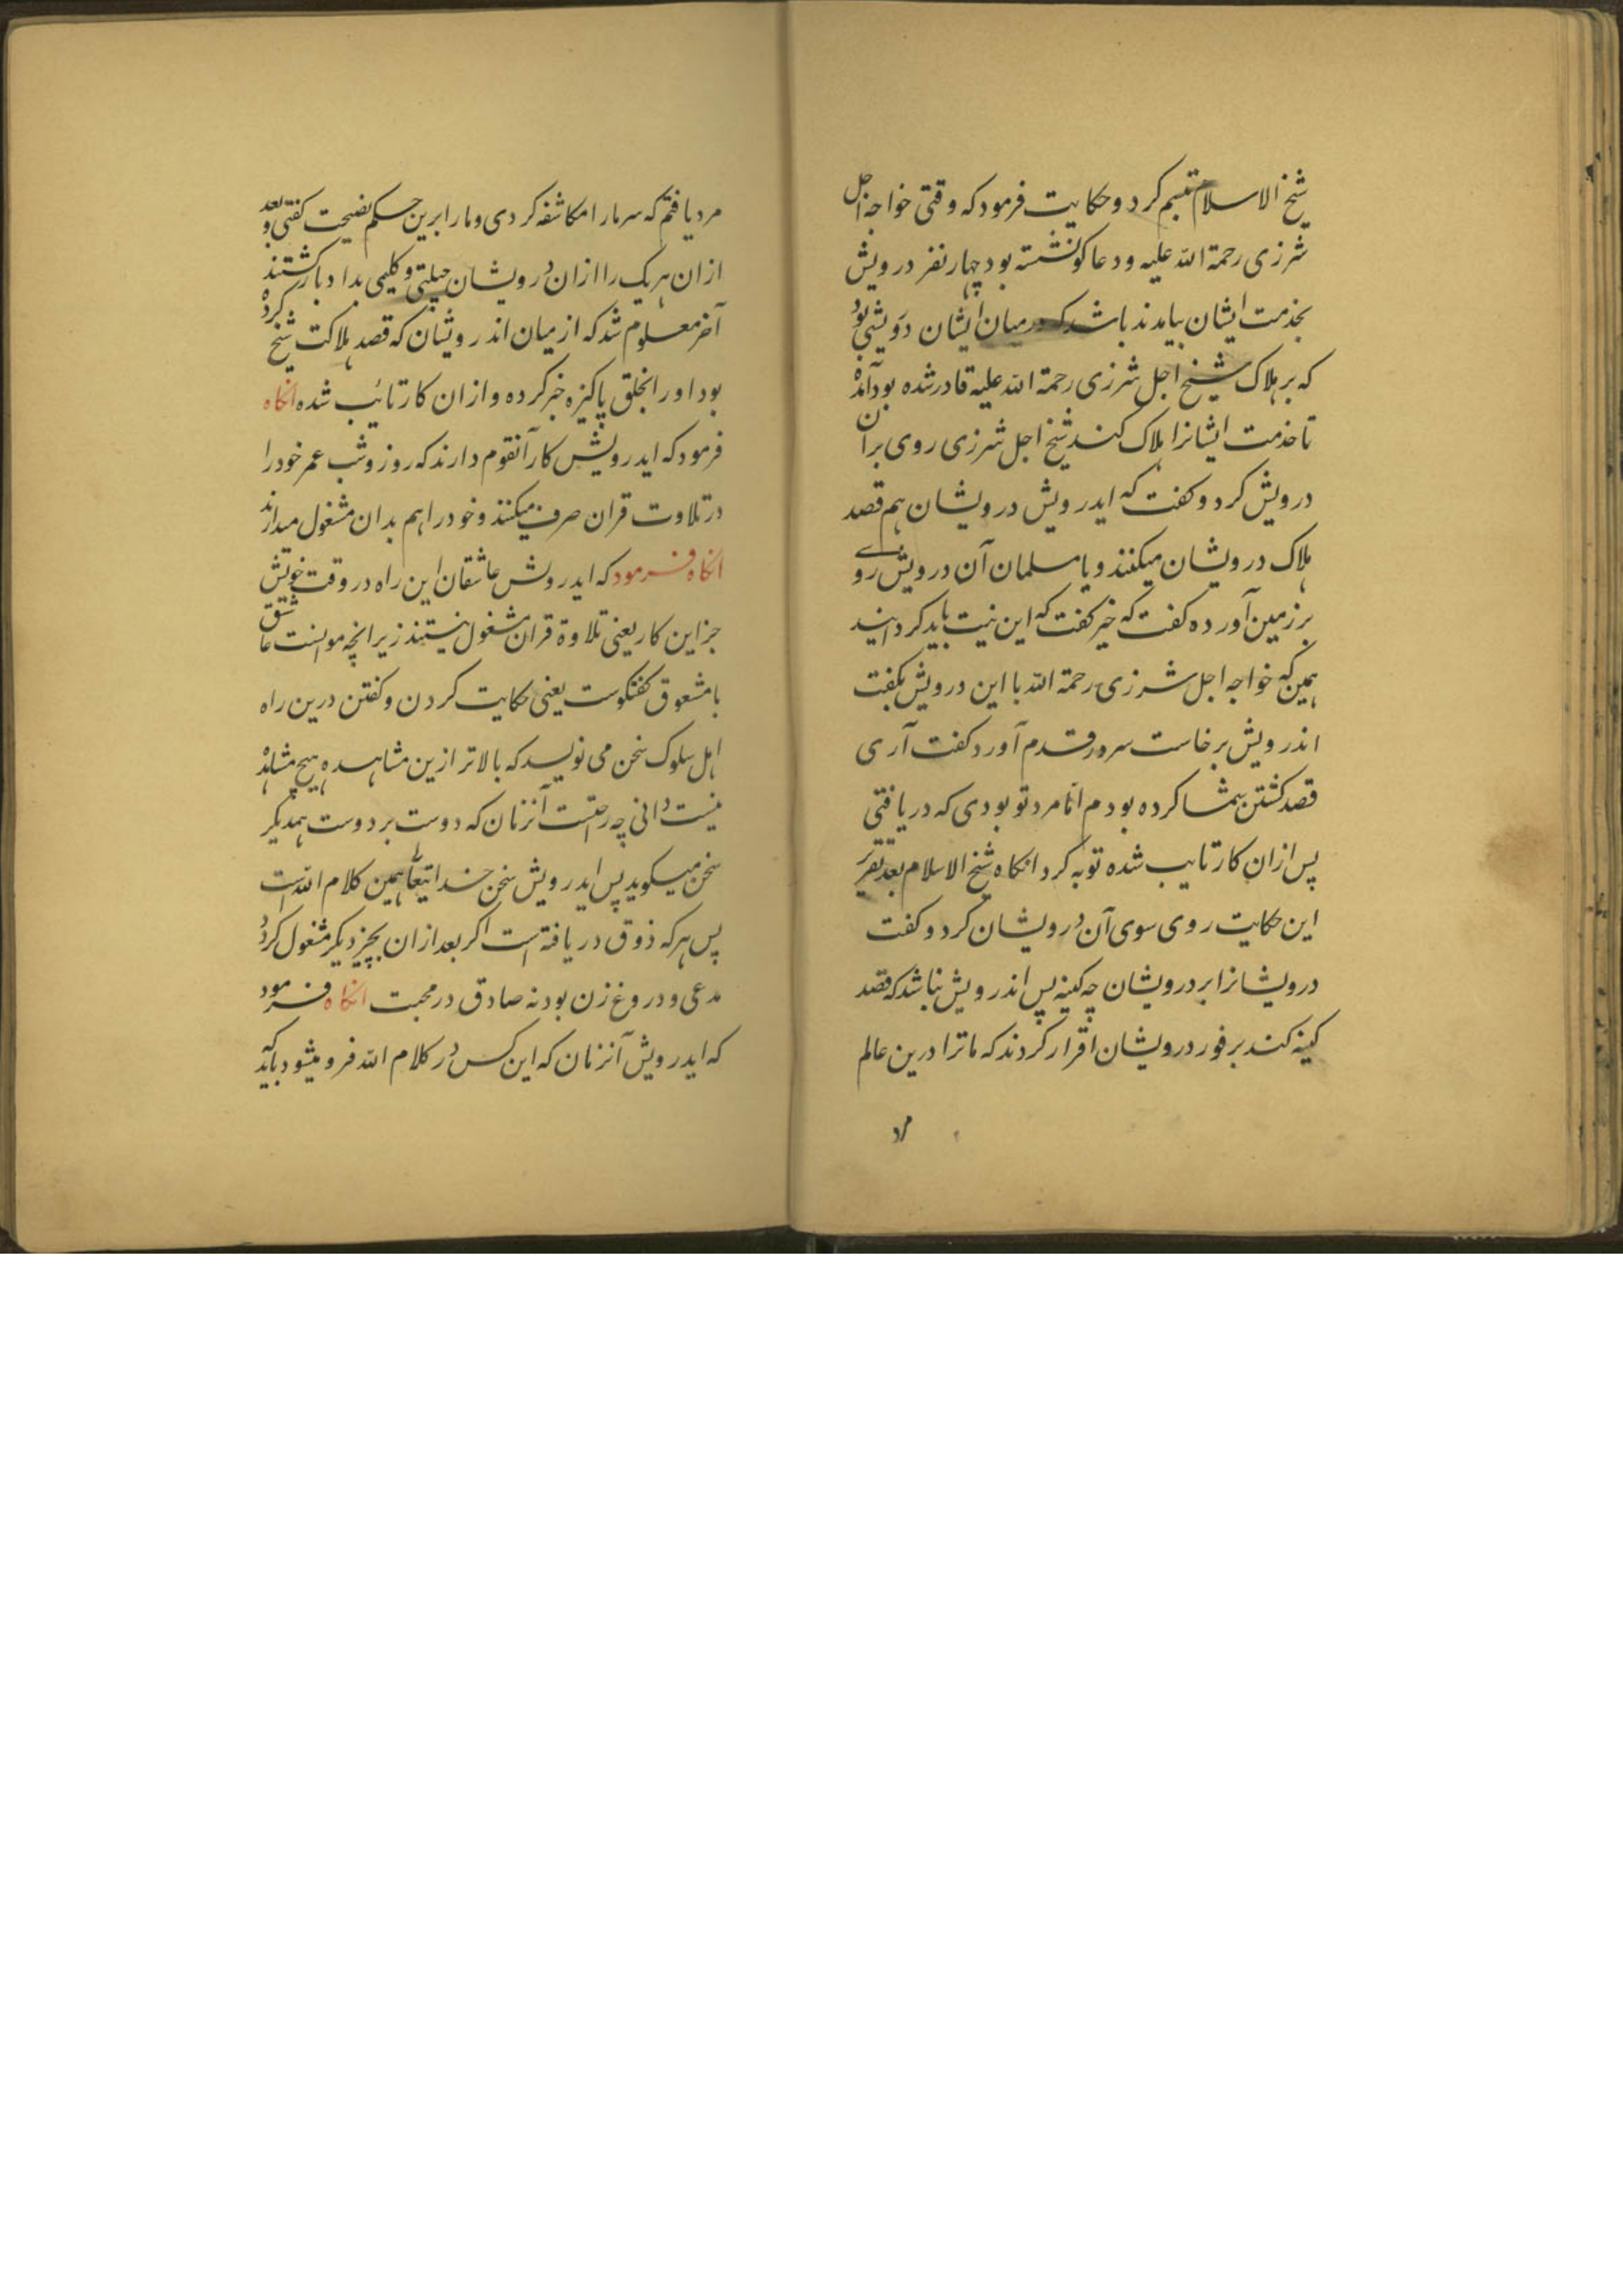 شیخ الاسلام تبسم کرد و حکایت فرمود که وقتی خواجه اجل
شرزی رحمة الله علیه و دعا کو نشسته بود چهار نفر درویش
بخدمت ایشان بیامدند باشد که در میان ایشان درویشی بود
که بر هلاک شیخ اجل شرزی رحمة الله علیه قادر شده بود آمده
تا خدمت ایشانرا هلاک کند شیخ اجل شرزی روی بر آن
درویش کرد و کفت که ایدرویش درویشان هم قصد
هلاک درویشان میکنند و یا مسلمان آن درویش روے
بر زمین آورده کفت که خیر کفت که این نیت باید کردانید
همین که خواجه اجل شرزی رحمة الله با این درویش بکفت
اندرویش برخاست سر در قدم آورد کفت آری
قصد کشتن شما کرده بودم اما مرد تو بودی که دریافتی
پس ازان کار تایب شده توبه کرد انکاه شیخ الاسلام بعد تقریر
این حکایت روی سوی آن درویشان کرد و کفت
درویشانرا بر درویشان چه کینه پس اندرویش نباشد که قصد
کینه کند بر فور درویشان اقرار کردند که ما ترا درین عالم
مرد
مرد یافتم که سر مارا مکاشفه کردی و مارا برین حکم نصیحت کفتی و بعد
ازان هر یک را ازان درویشان و کلیمی بداد بازکشتند
آخر معلوم شد که از میان اندرویشان که قصد هلاکت شیخ کرده
بود اورا بخلق پاکیزه خبر کرده و ازان کار تائب شده انکاه
فرمود که ایدرویش کار آنقوم دارند که روز و شب عمر خود را
در تلاوت قران صرف میکنند و خود را هم بدان مشغول میدارند
انکاه فرمود که ایدرویش عاشقان این راه در وقت خویش
جز این کار یعنی تلاوة قران مشغول نیستند زیرا نچه موانست عاشق
با معشوق کفتکوست یعنی حکایت کردن و کفتن درین راه
اهل سلوک سخن می نویسد که بالاتر ازین مشاهده هیچ مشاهده
نیست دانی چه راحتست آنزمان که دوست بر دوست همدیکر
سخن میکوید پس ایدرویش سخن خدایتعالی همین کلام الله است
پس هر که ذوق دریافته است اکر بعد ازان بچیز دیکر مشغول کردد
مدعی و دروغ زن بود نه صادق در محبت انکاه فرمود
که ایدرویش آنزمان که این کس در کلام الله فرو میشود باید که